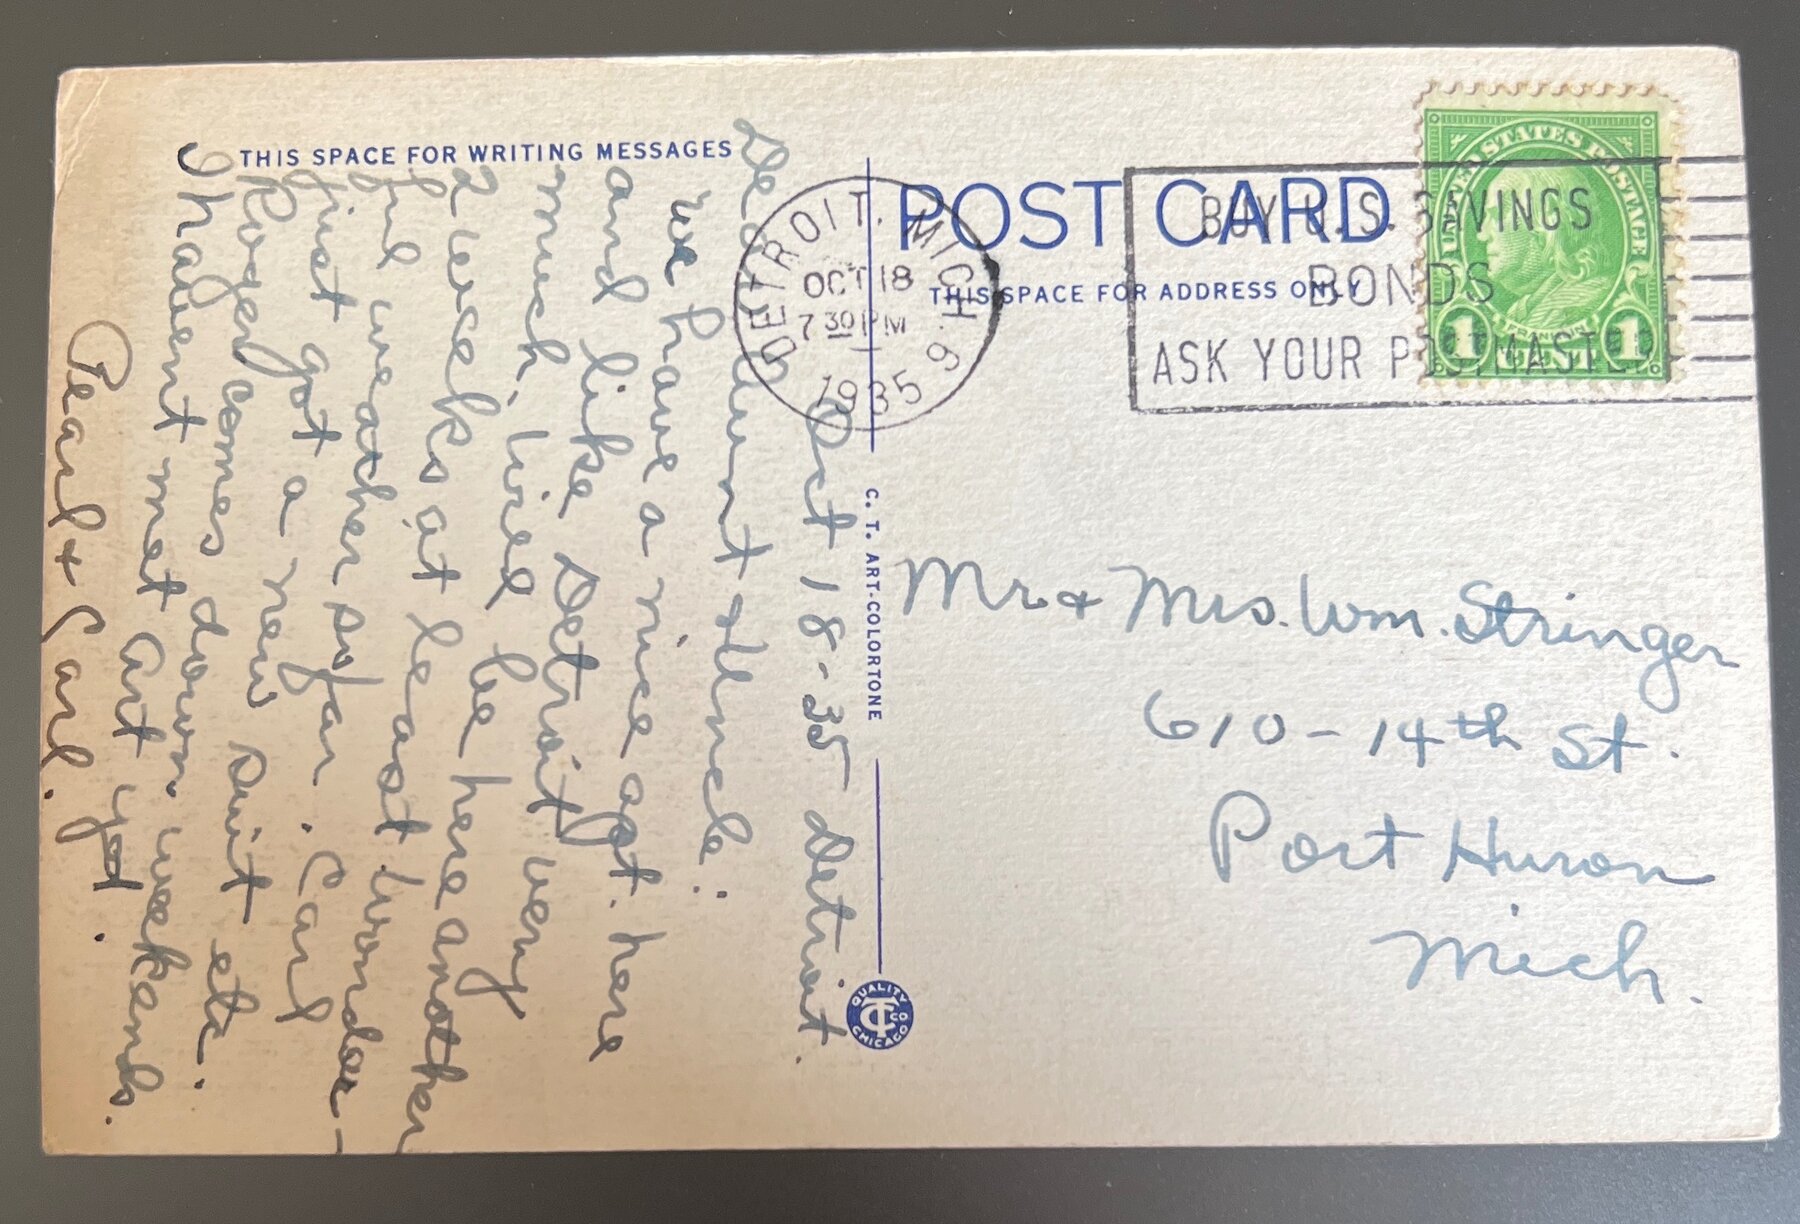 THIS SPACE FOR WRITING MESSAGES
POST CARD
THIS SPACE FOR ADDRESS ONLY
DETROIT, MICH. 9
OCT 18
7 30 PM
1935
BUY U.S. SAVINGS
BONDS
ASK YOUR POSTMASTER
UNITED STATES POSTAGE
FRANKLIN
1 CENT 1
C. T. ART-COLORTONE
QUALITY CHICAGO
Oct 18-35 Detroit.
Dear Aunt & Uncle:
We have a nice apt. here
and like Detroit very
much, will be here another
2 weeks at least. Wonder-
ful weather so far. Carl
just got a new suit etc.
Roger comes down weekends.
I haven't met Art yet.
Pearl + Carl.
Mr & Mrs. Wm. Stringer
610-14th St.
Port Huron
Mich.